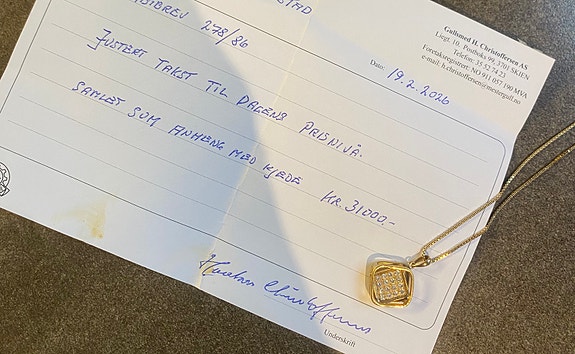 Gullsmed H. Christoffersen AS
Liegt. 10, Postboks 99, 3701 SKIEN
Telefon: 35 52 74 23
Foretaksregisteret: NO 911 057 190 MVA
e-mail: h.christoffersen@mestergull.no
Dato: 19.2.2026
278/86
JUSTERT TAKST TIL DAGENS PRISNIVÅ.
SAMLET SOM ANHENG MED KJEDE KR. 31000.-
Christoffersen
Underskrift